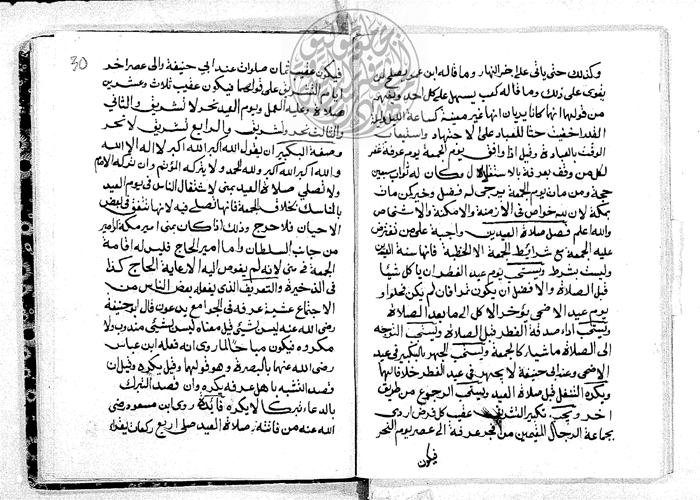 وكذلك حتى ياتي على اخر النهار وما قاله ابن عمر يصلح لمن
يقوى على ذلك وما قاله كعب يسهل على كل احد ويفهم
من قولهما انهما كانا يريان انها غير معينة كساعة الليل وليلة
القدر اخفيت حثا للعباد على الاجتهاد واستيعاب
الوقت بالعبادة وقيل اذا وافق يوم الجمعة يوم عرفة غفر
لكل من وقف بعرفة بالاستقلال وكان له ثواب سبعين
حجة ومن مات يوم الجمعة يرجى له فضل وخير كمن مات
بمكة لان لله خواص في الازمنة والامكنة والاشخاص
والله اعلم فصل صلاة العيدين واجبة على من تفترض
عليه الجمعة مع شرايط الجمعة الا الخطبة فانها سنة العيدين
وليست بشرط ويستحب يوم عيد الفطر ان ياكل شيئا
قبل الصلاة والافضل ان يكون تمرا فان لم يكن فحلوا و
يوم عيد الاضحى يؤخر الاكل الى ما بعد الصلاة
ويستحب اداء صدقة الفطر قبل الصلاة ويستحب التوجه
الى الصلاة ماشيا كالجمعة ويستحب الجهر بالتكبير في عيد
الاضحى وعند ابي حنيفة لا يجهر في عيد الفطر خلافا لهما
ويكره التنفل قبل صلاة العيد ويستحب الرجوع من طريق
اخر ويجب تكبير التشريق عقيب كل فرض ادي
بجماعة الرجال المقيمين من فجر عرفة الى عصر يوم النحر
فيكون
30
فيكون عقيب ثمان صلوات عند ابي حنيفة والى عصر اخر
ايام التشريق على قولهما فيكون عقيب ثلاث وعشرين
صلاة وعليه العمل ويوم العيد نحر لا تشريق والثاني
والثالث نحر وتشريق والرابع تشريق لا نحر
وصفة التكبير ان يقول الله اكبر الله اكبر لا اله الا الله
والله اكبر الله اكبر ولله الحمد ولا يتركه المؤتم وان تركه الامام
ولا تصلي صلاة العيد بمنى لاشتغال الناس في يوم العيد
بالمناسك بخلاف الجمعة فانها تصلي فيه لانها تتفق في بعض
الاحيان فلا حرج وذلك اذا كان بمنى امير مكة الامير
من جانب السلطان واما امير الحاج فليس له اقامة
الجمعة في منى لانه لم يفوض اليه الا رعاية الحاج كذا
في الذخيرة والتعريف الذي يفعله بعض الناس من
الاجتماع عشية عرفة في الجوامع يدعون قال ابو حنيفة
رضي الله عنه ليس بشئ قيل معناه ليس بشئ مندوب ولا
مكروه فيكون مباحا لما روي انه فعله ابن عباس
رضي الله عنهما بالبصرة وهو قولهما وقيل يكره وقيل ان
قصد التشبه باهل عرفة يكره وان قصد التبرك
بالدعاء لا يكره فائدة روى ابن مسعود رضي
الله عنه من فاتته صلاة العيد صلى اربع ركعات يقرا